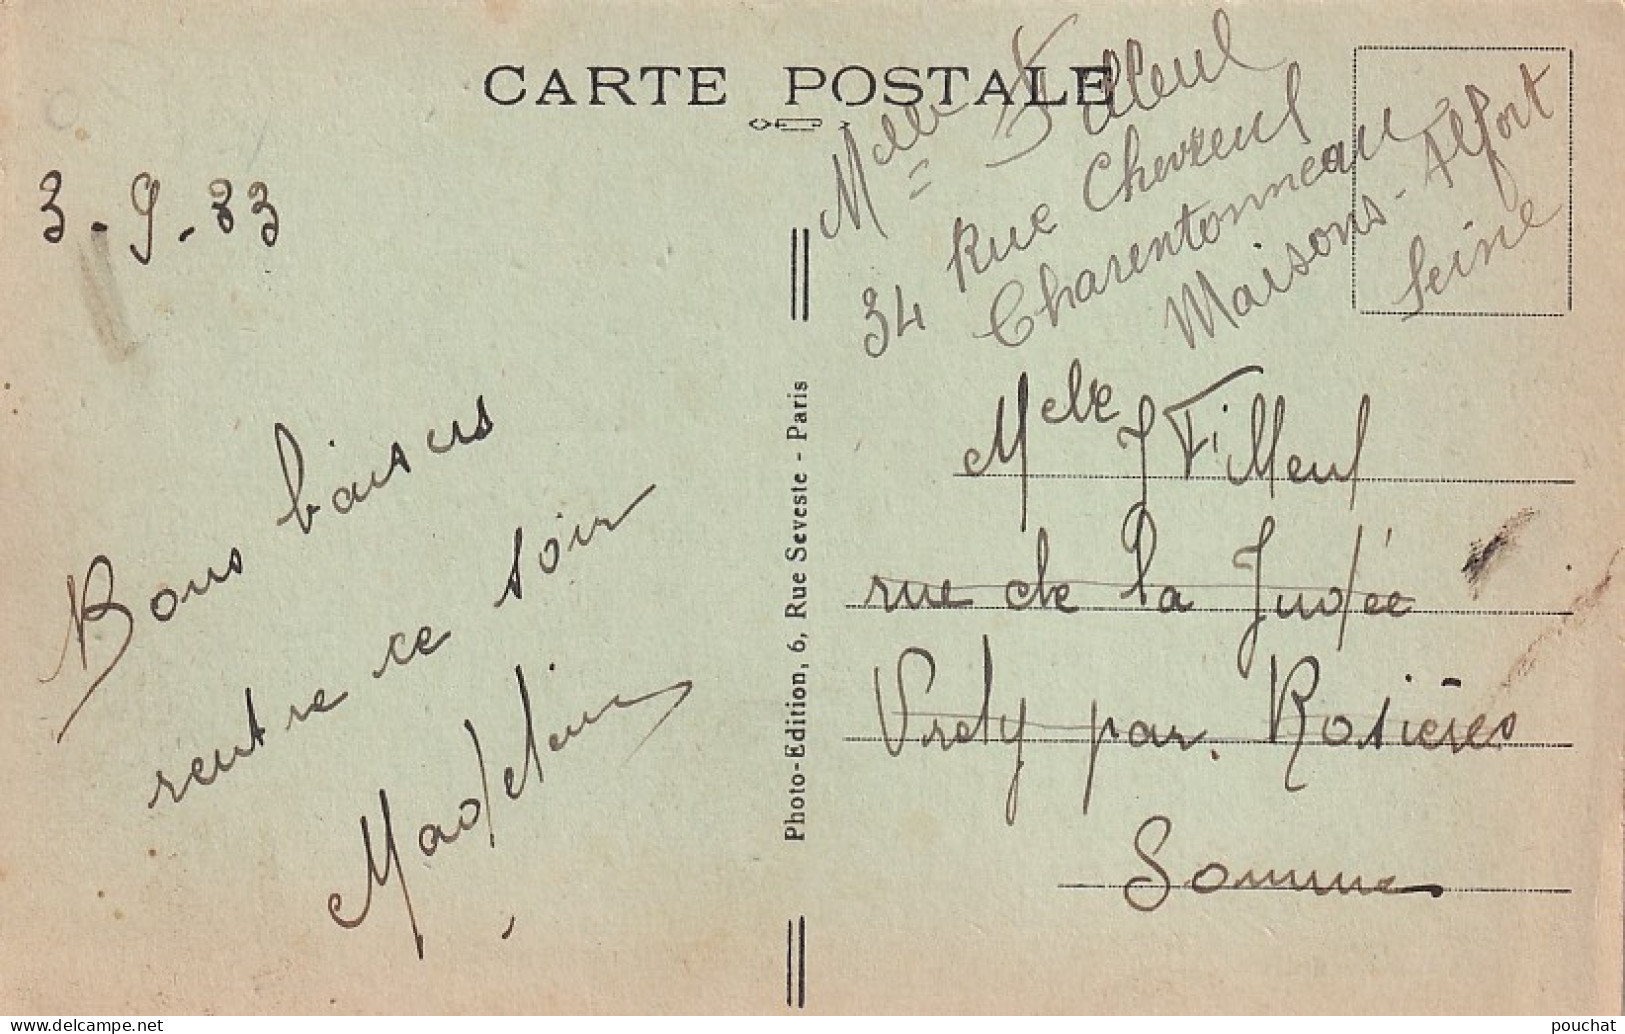 CARTE POSTALE
3-9-33
Bons baisers
rentre ce soir
Madeleine
Photo-Edition, 6, Rue Seveste - Paris
Melle Filleul
34 Rue Chevreul
Charentonneau
Maisons-Alfort
Seine
Melle J Filleul
rue de la Judée
Vrely par Rosières
Somme
pouchat